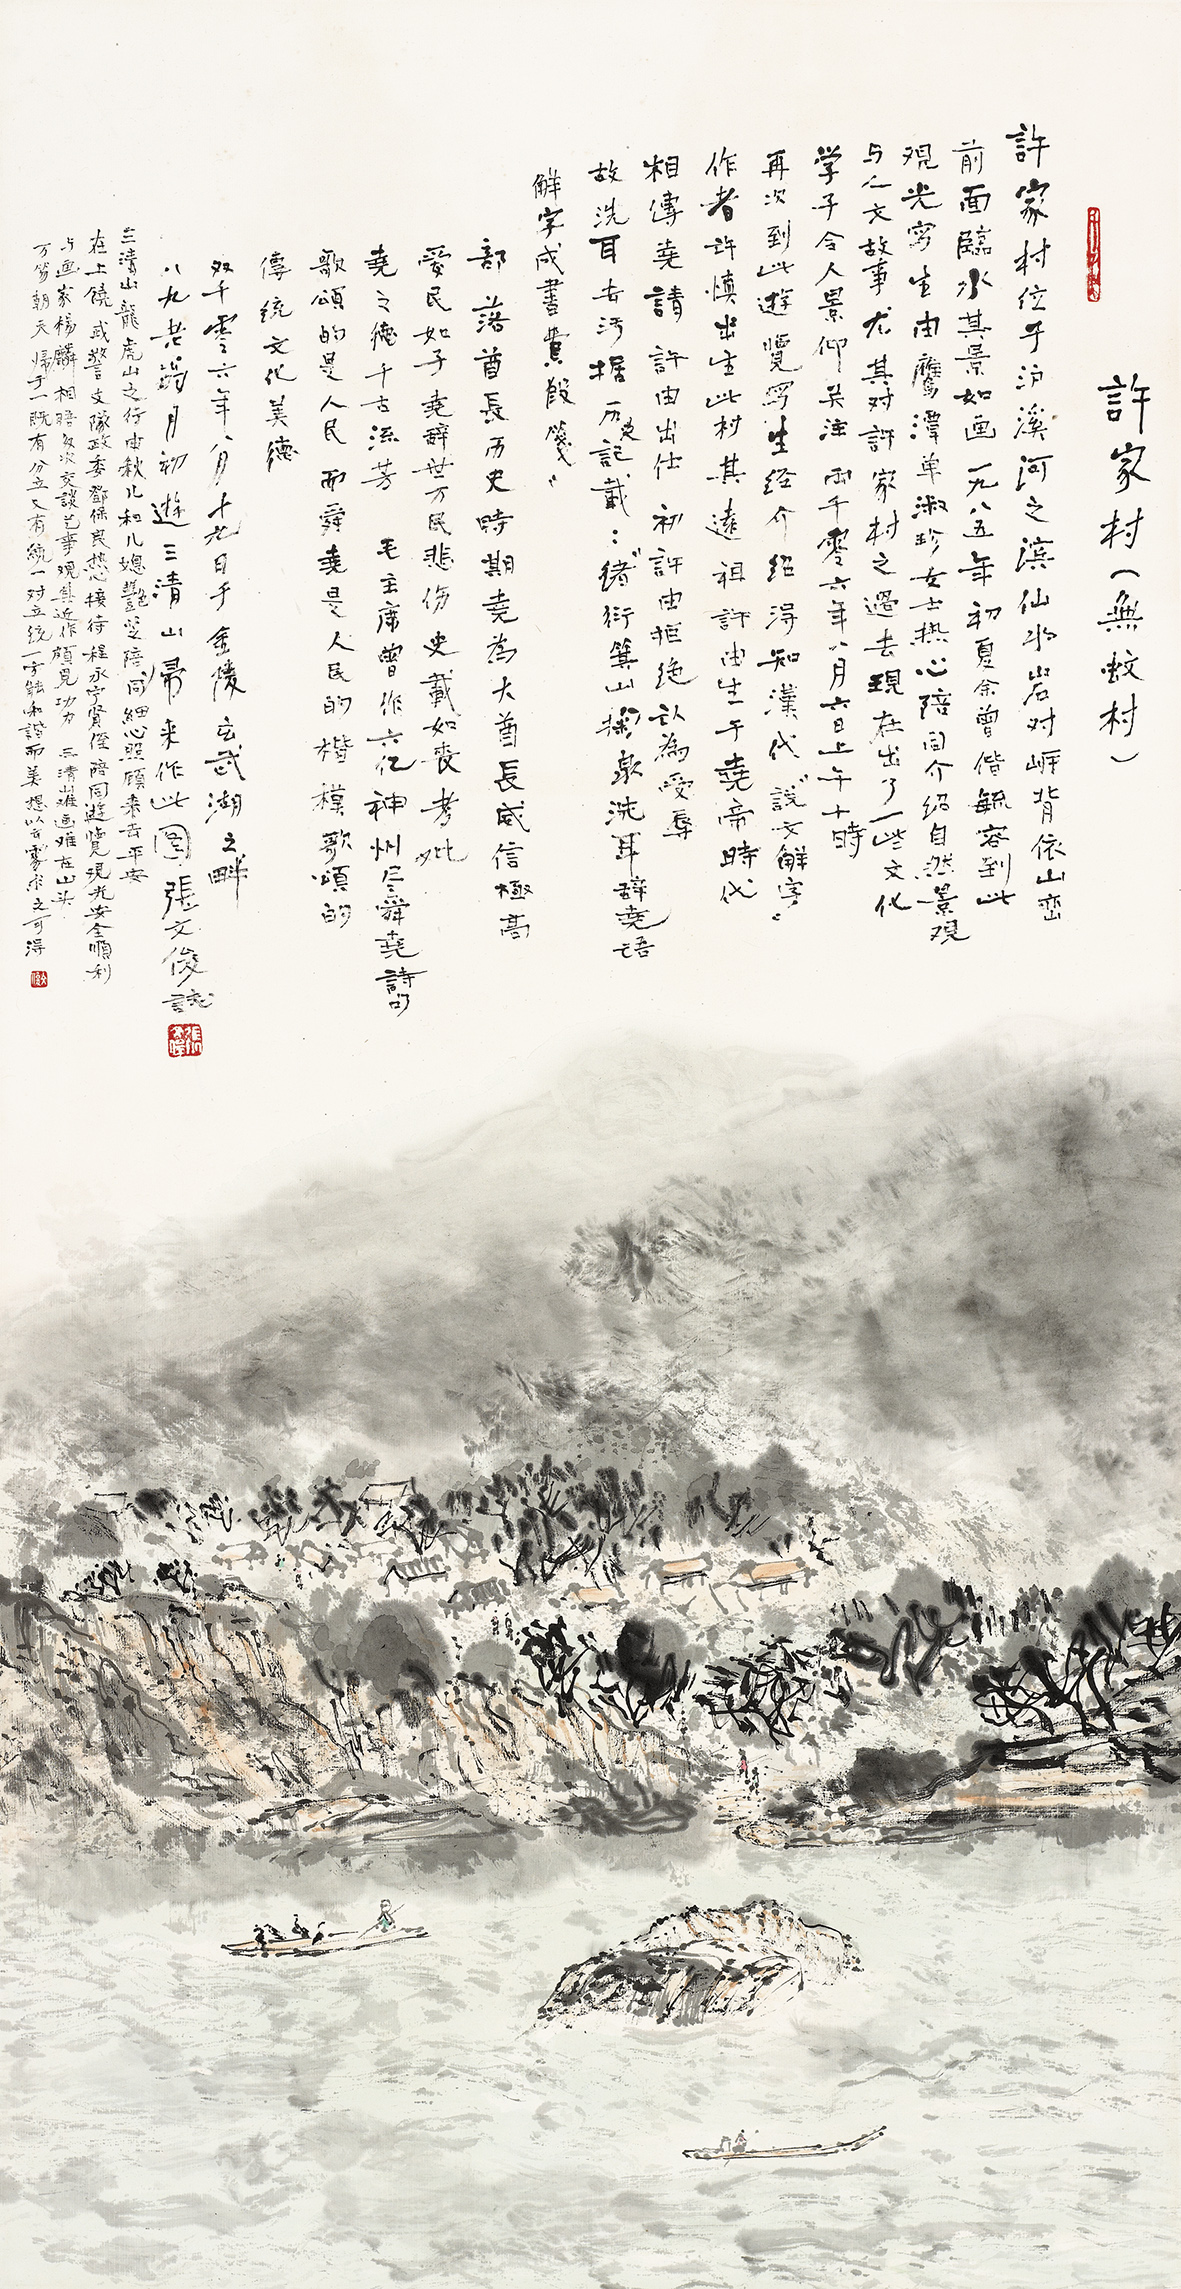 許家村（無蚊村）
許家村位于沪溪河之滨仙水岩对岸背依山峦
前面臨水其景如画一九八五年初夏余曾偕毓容到此
观光写生由鹰潭单淑珍女士热心陪同介绍自然景观
与人文故事尤其对許家村之過去現在出了一些文化
学子令人景仰关注两千零六年八月六日上午十時
再次到此遊覽写生经介绍得知漢代“說文解字”
作者許慎出生此村其遠祖許由生于堯帝時代
相傳堯請許由出仕初許由拒絕认為受辱
故洗耳去污据历史記載：“緒衍箕山掬泉洗耳辞堯语
解字成書費殷箋”
部落首長历史時期堯為大酋長威信極高
愛民如子堯辭世万民悲伤史載如丧考妣
堯之德千古流芳 毛主席曾作六亿神州尽舜堯詩句
歌頌的是人民而舜堯是人民的楷模歌頌的
傳统文化美德
双千零六年八月十九日于金陵玄武湖之畔
八九老翁月初遊三清山歸来作此图張文俊誌
三清山龍虎山之行由秋儿和儿媳艷萍陪同細心照顾来去平安
在上饶武警支隊政委鄧保良热心接待程永宁贤侄陪同遊覽观光安全順利
与画家楊麟相晤多次交談艺事观其近作頗見功力 三清山难画难在山头
万笏朝天歸于一既有分立又有統一对立統一方能和諧而美想以云雾求之可得